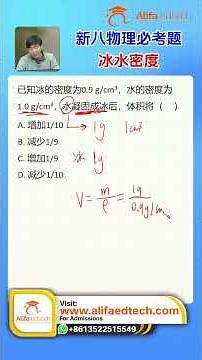 Alifa edtech
新八物理必考题
冰水密度
已知冰的密度为0.9 g/cm³，水的密度为
1.0 g/cm³，水凝固成冰后，体积将（ ）
A. 增加1/10
1g
1cm³
B. 减少1/9
C. 增加1/9
冰 1g
D. 减少1/10
V = m/ρ = 1g/0.9g/cm
Alifa
edtech
Visit:
www.alifaedtech.com
For Admissions
+8613522515549